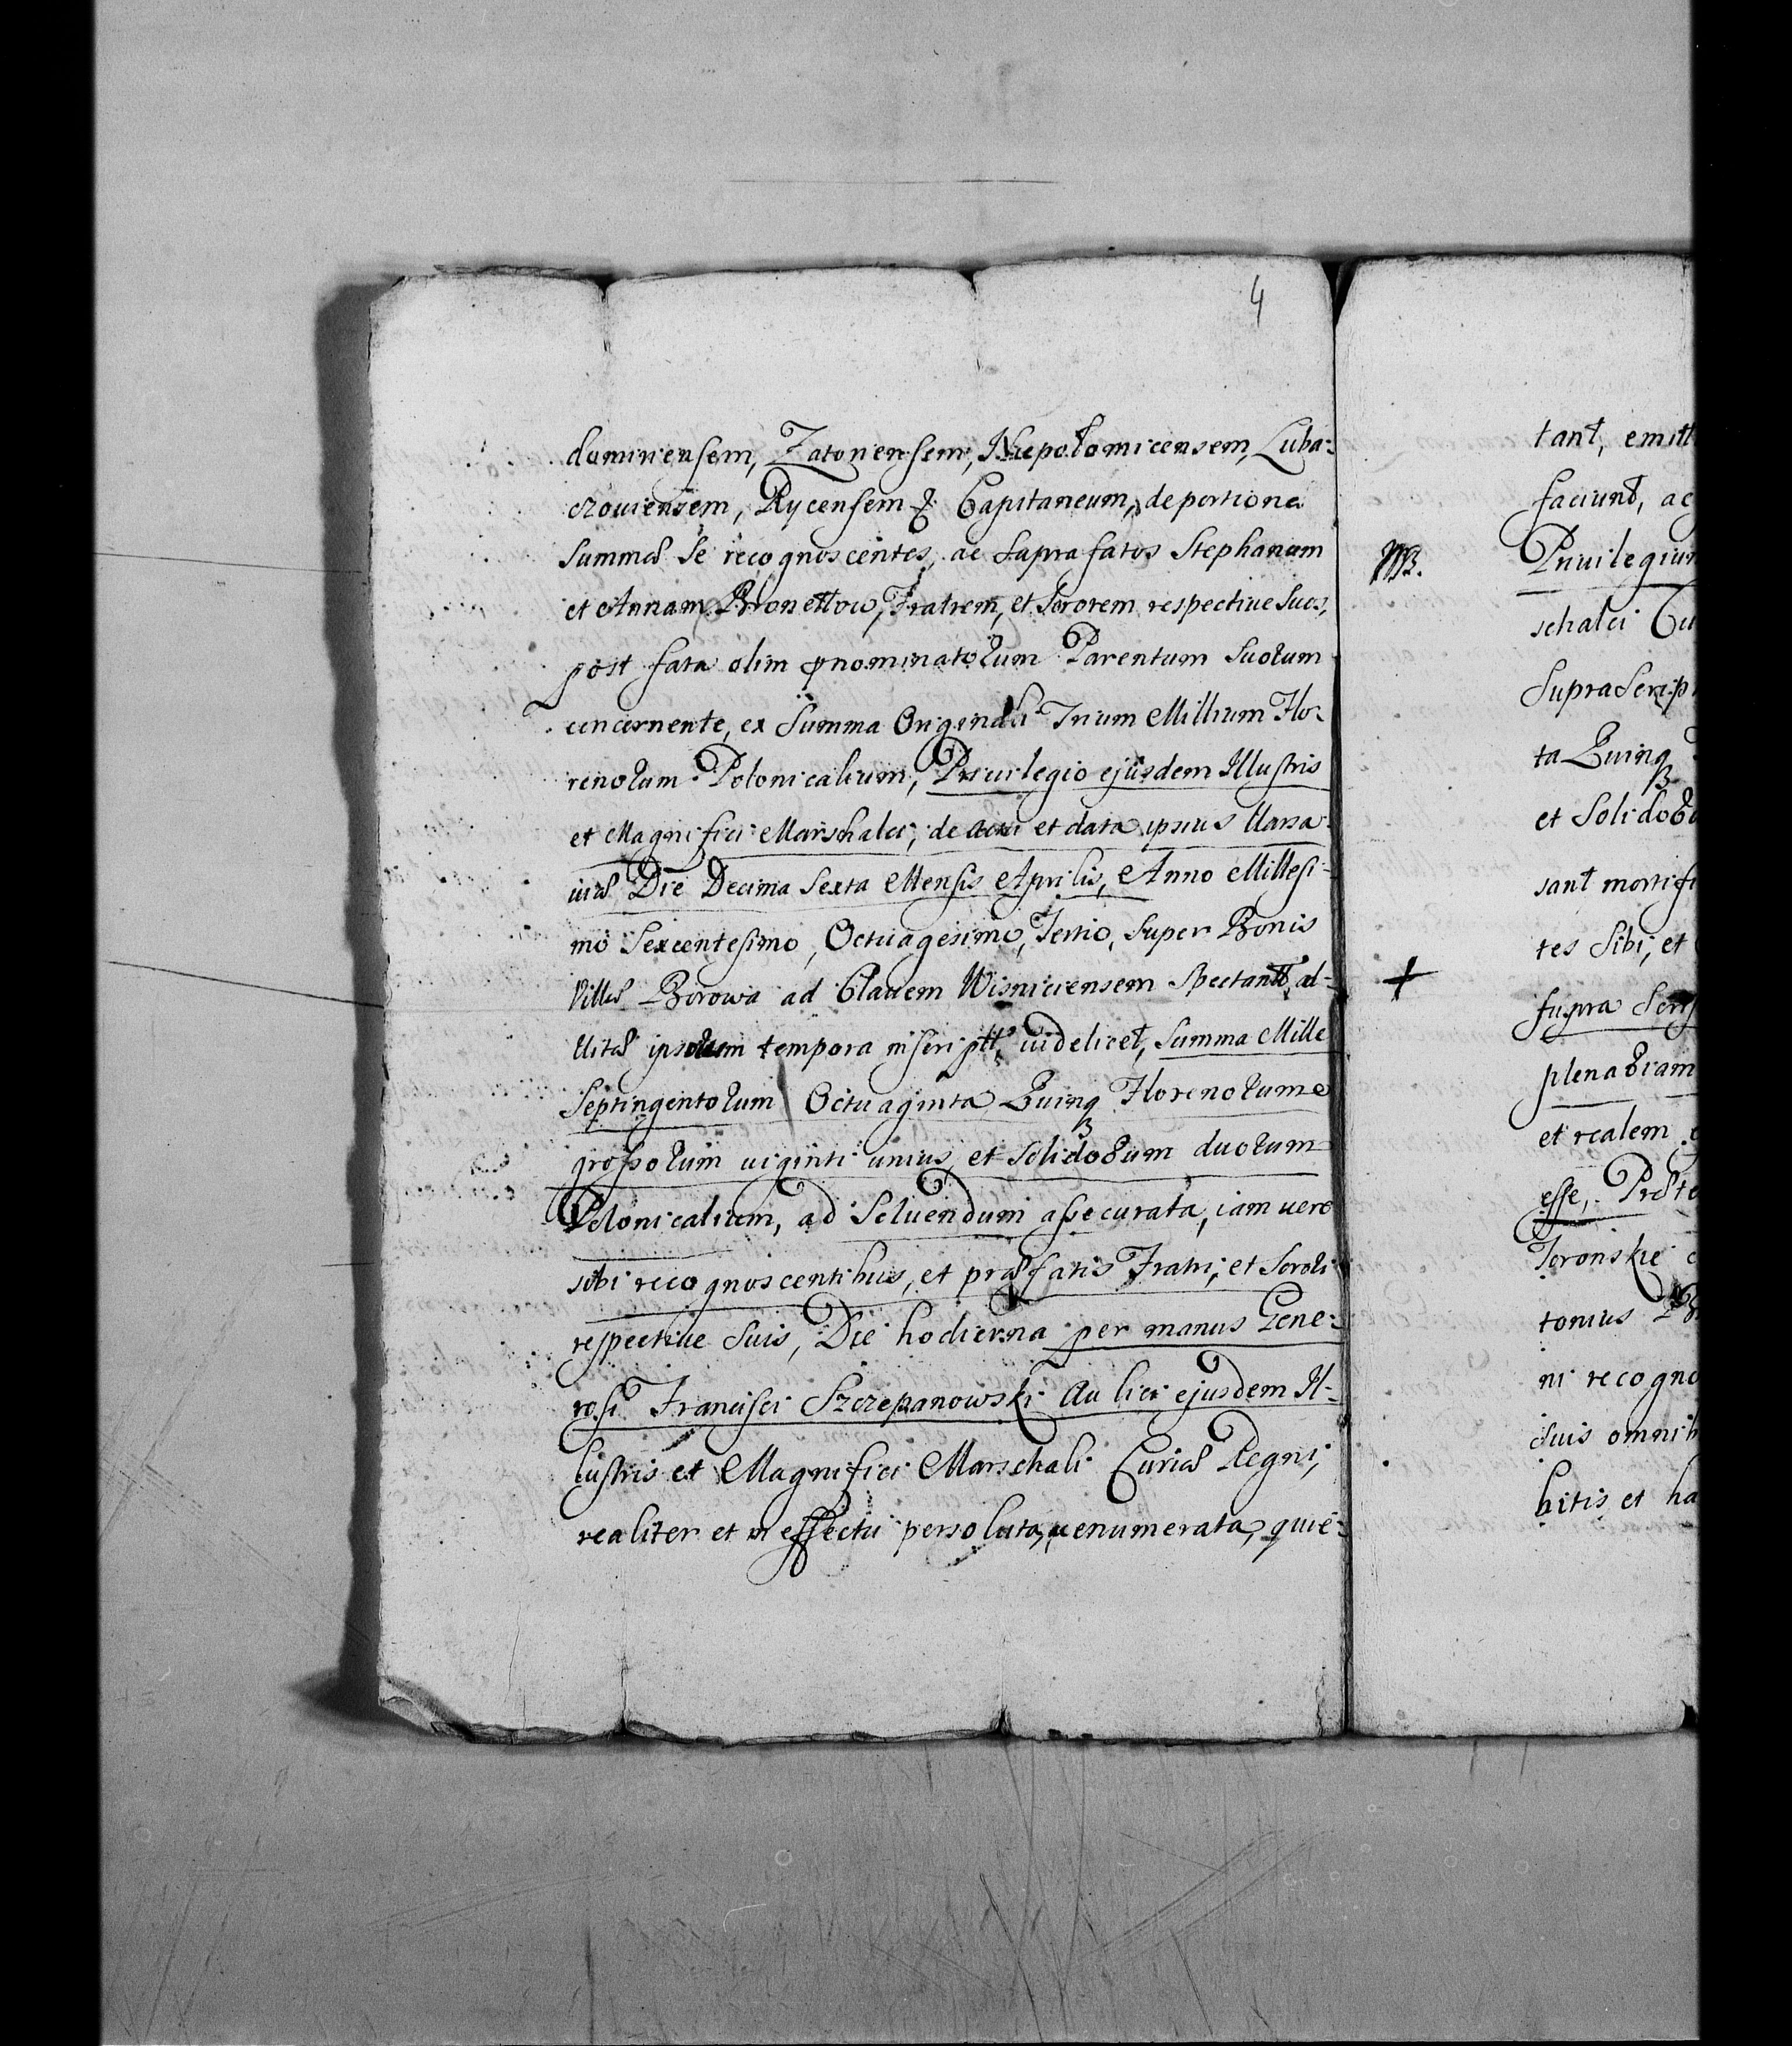 4
daminensem, Zatorensem, Niepołomicensem, Luba-
czouiensem, Rycensem & Capitaneum, de portione
Summæ Se recognoscentes, ac Suprafatos Stephanum
et Annam Blonettow, Fratrem, et Sororem respectiue Suos,
post fata olim pnominatorum Parentum Suorum
concernente, ex Summa Originali Trium Millium Flo-
renorum Polonicalium, Priuilegio ejusdem Illustris
et Magnifici Marschalci, de actu et data ipsius Varsa-
uiæ Die Decima Sexta Mensis Aprilis, Anno Millesi-
mo Sexcentesimo, Octuagesimo, Tertio, Super Bonis
Villæ Borowa ad Clauem Wisniciensem Spectantt, ad
Vitæ ipsorum tempora inscriptt, uidelicet, Summa Mille
Septingentorum Octuaginta Quinq Florenorum
grossorum uiginti unius, et Solidorum duorum
Polonicalium, ad Soluendum assecurata, iam uero
sibi recognoscentibus, et præfatis Fratri, et Sorori
respectiue Suis, Die hodierna per manus Gene-
rosi Francisci Szczepanowski Aulici ejusdem Il-
lustris et Magnifici Marschali Curiæ Regni,
realiter et in effectu persoluta, enumerata, quie-
tant, emitt
faciunt, ac
NB. Priuilegium
schalci Cu
SupraScrip
ta Quinq
et Solidor
sant mortifi
tes Sibi, et
+ supra Scrip
plenariam
et realem
esse, Præte
Toronskie
tonius
ni recogno
Suis omnib
bitis et ha